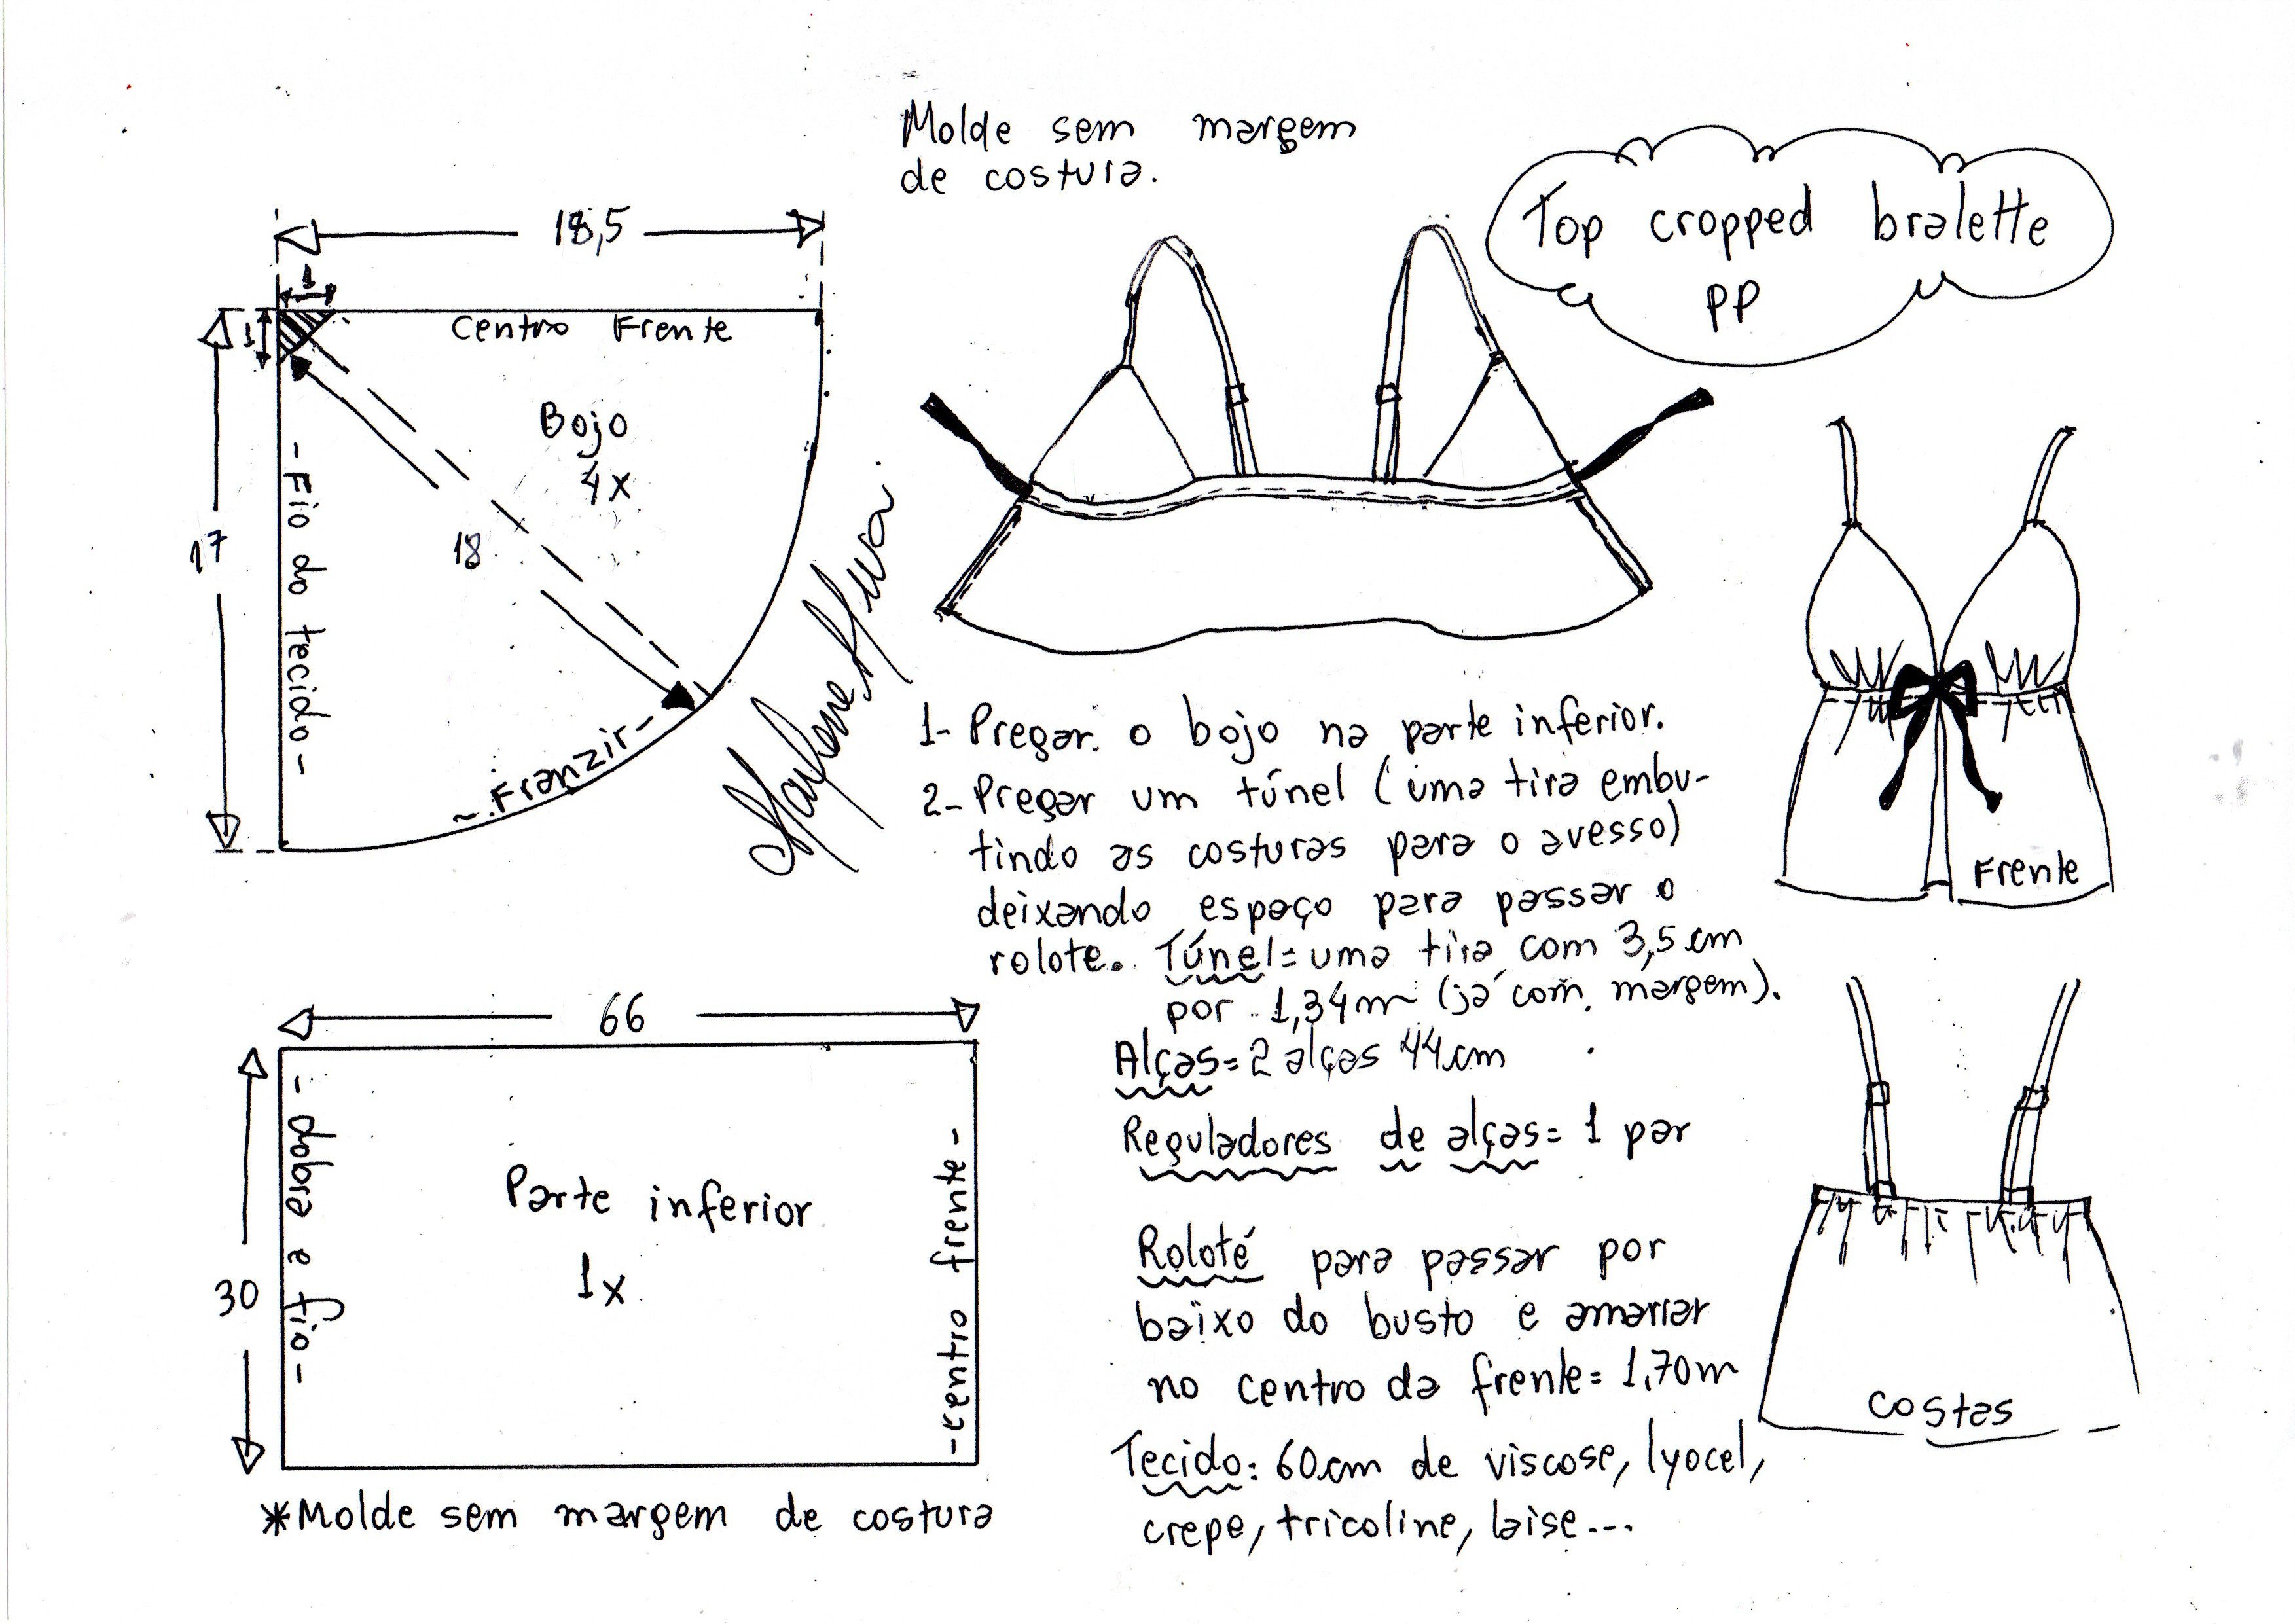 Molde sem margem
de costura.
Top cropped bralette
PP
18,5
1
1
Centro Frente
Bojo
4x
17
18
- Fio do tecido -
- Franzir -
1- Pregar o bojo na parte inferior.
2- Pregar um túnel (uma tira embu-
tindo as costuras para o avesso)
deixando espaço para passar o
rolote. Túnel= uma tira com 3,5 cm
por 1,34m (já com margem).
Alças= 2 alças 44cm
Reguladores de alças= 1 par
Roloté para passar por
baixo do busto e amarrar
no centro da frente= 1,70m
Tecido: 60cm de viscose, lyocel,
crepe, tricoline, laise...
66
30
- dobra e fio -
Parte inferior
1x
- centro frente -
*Molde sem margem de costura
Frente
Costas